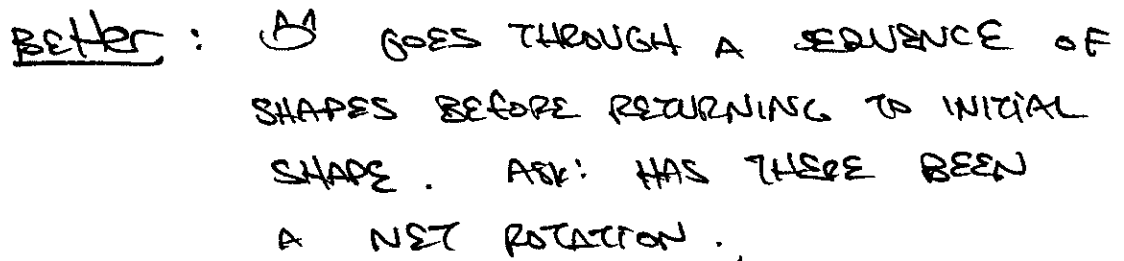 BEtter: GOES THROUGH A SEQUENCE OF
SHAPES BEFORE RETURNING TO INITIAL
SHAPE. ASK: HAS THERE BEEN
A NET ROTATION.